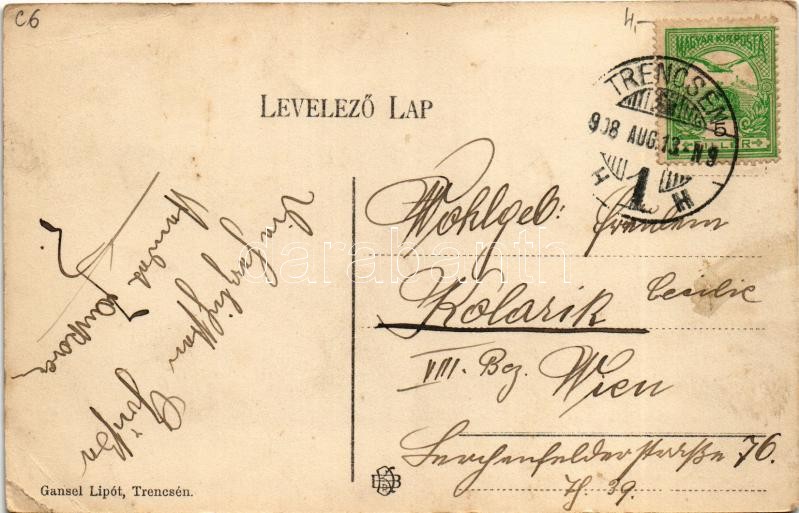 C6
4,-
MAGYAR KIR. POSTA
TRENCSÉN
908 AUG. 13 - N 9
5
1
H H
LEVELEZŐ LAP
Wohlgeb: Fräulein
Kolarik Cecilie
VIII. Bez. Wien
Lerchenfelderstraße 76.
Th. 39.
Die herzlichsten
Grüße
darabanth
Gansel Lipót, Trencsén.